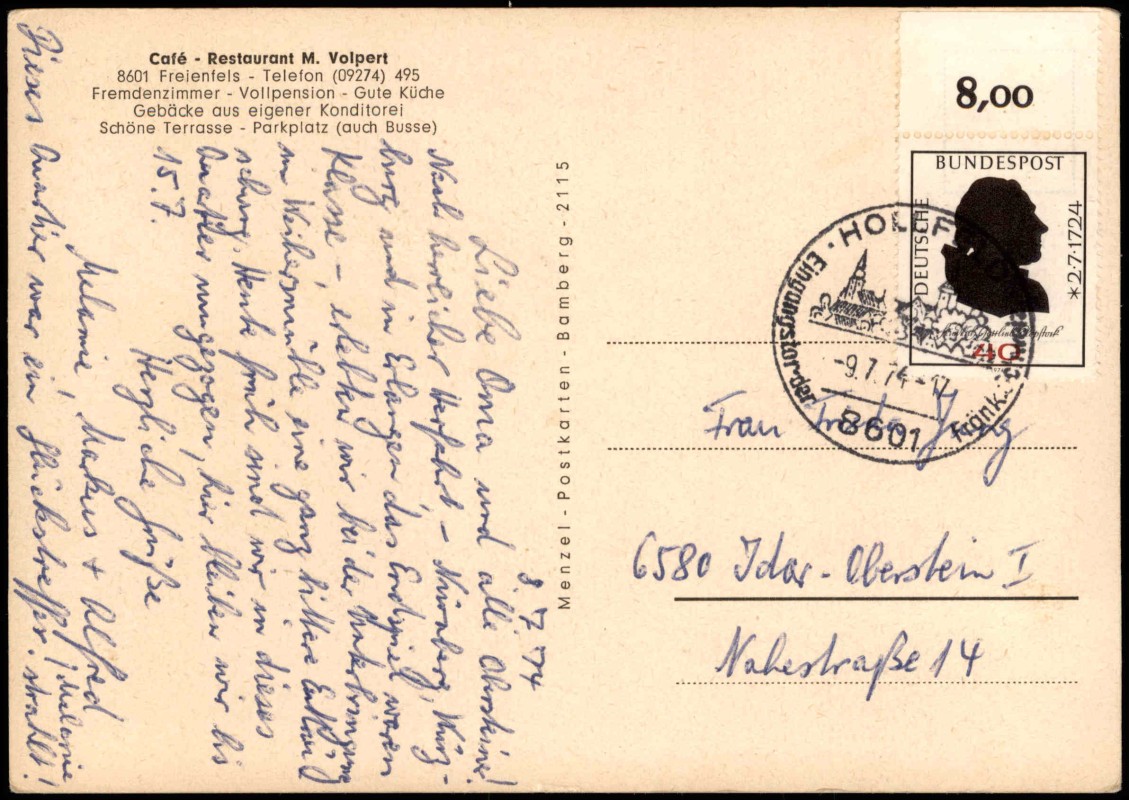 Café - Restaurant M. Volpert
8601 Freienfels - Telefon (09274) 495
Fremdenzimmer - Vollpension - Gute Küche
Gebäcke aus eigener Konditorei
Schöne Terrasse - Parkplatz (auch Busse)
8.7.74
Liebe Oma und alle
Nach herrlicher Herfahrt - Nürnberg, Würz-
burg und in Erlangen das Endspiel waren
Klasse -, erlebten wir bei der Unterbringung
im Weihersmühle eine ganz bittere Enttäu-
schung. Heute früh sind wir in dieses
Quartier umgezogen, hier bleiben wir bis
15.7.
Herzliche Grüße
Melanie, Markus + Alfred
Dieses Quartier war ein Glückstreffer! Melanie strahlt!
Menzel - Postkarten - Bamberg - 2115
8,00
BUNDESPOST
DEUTSCHE
* 2·7·1724
40
Eingangstor der Fränk.
-9.7.74-17
8601
Frau
6580 Idar-Oberstein I
Nahestraße 14